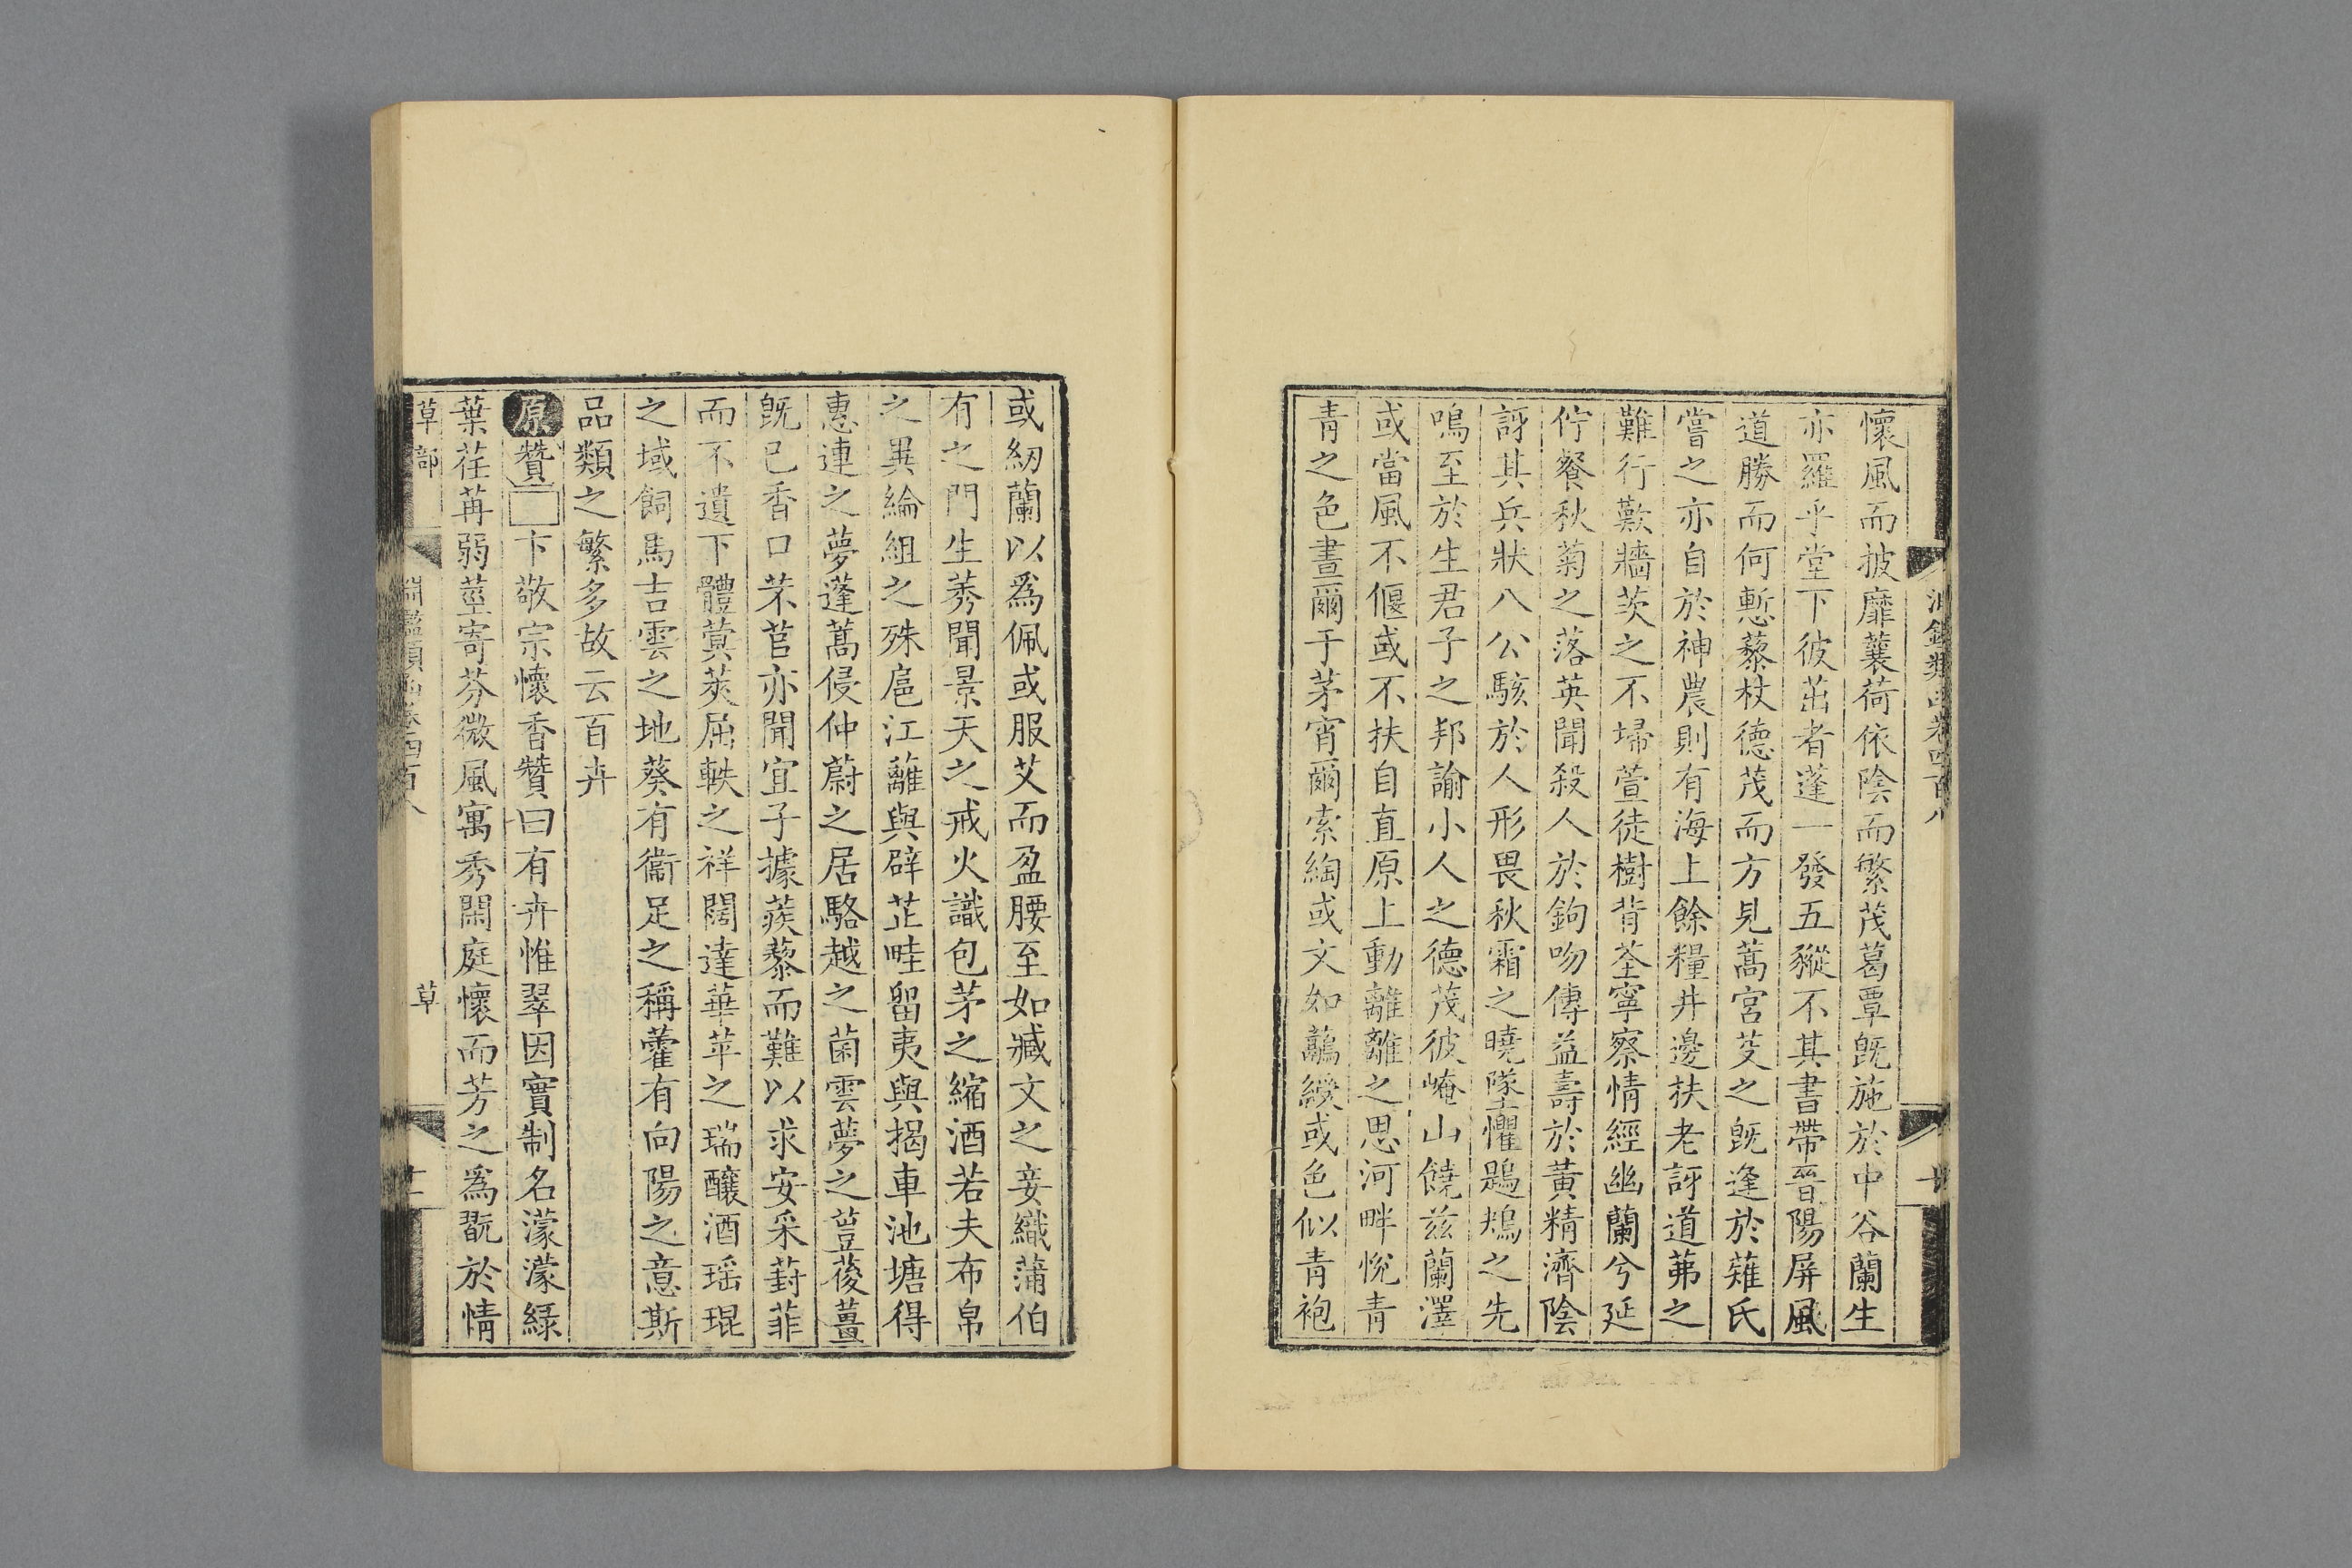 懷風而披靡蘘荷依陰而繁茂葛覃旣施於中谷蘭生
亦羅乎堂下彼茁者蓬一發五豵不其書帶晉陽屏風
道勝而何慙藜杖德茂而方見蒿宮芟之旣逢於薙氏
嘗之亦自於神農則有海上餘糧井邊扶老訝道茀之
難行歎牆茨之不埽萱徒樹背荃寧察情經幽蘭兮延
佇餐秋菊之落英聞殺人於鉤吻傳益壽於黃精濟陰
訝其兵狀八公駭於人形畏秋霜之曉墜懼鶗鴂之先
鳴至於生君子之邦諭小人之德茂彼崦山饒茲蘭澤
或當風不偃或不扶自直原上動離離之思河畔悅青
青之色晝爾于茅宵爾索綯或文如虉綬或色似青袍
或紉蘭以爲佩或服艾而盈腰至如臧文之妾織蒲伯
有之門生莠聞景天之戒火識包茅之縮酒若夫布帛
之異綸組之殊扈江離與辟芷畦留夷與揭車池塘得
惠連之夢蓬蒿侵仲蔚之居駱越之菌雲夢之荳蔆薑
旣已香口芣苢亦聞宜子據蒺藜而難以求安采葑菲
而不遺下體蓂莢屈軼之祥闊達華苹之瑞釀酒瑤琨
之域飼馬吉雲之地葵有衞足之稱藿有向陽之意斯
品類之繁多故云百卉
原贊卞敬宗懷香贊曰有卉惟翠因實制名濛濛綠
葉荏苒弱莖寄芬微風寓秀閑庭懷而芳之爲翫於情
草部
淵鑑類函卷四百八
草